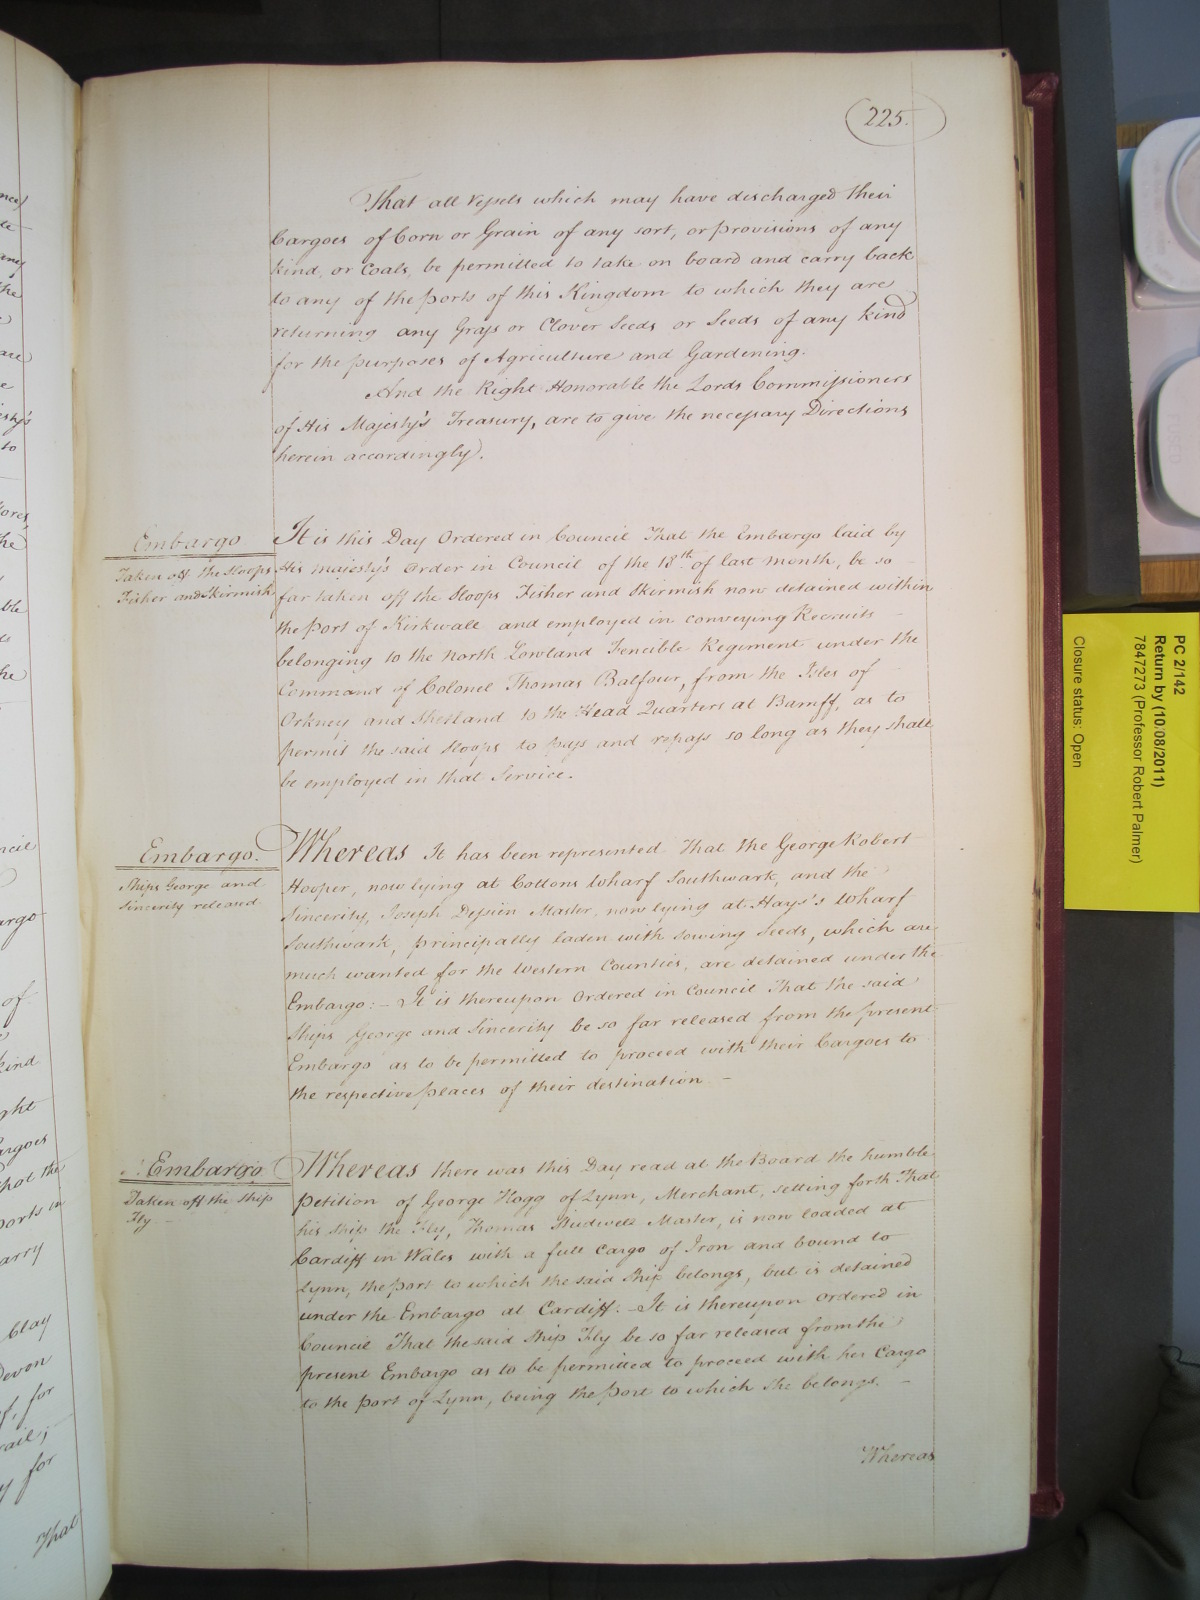 225.
That all Vessels which may have discharged their
Cargoes of Corn or Grain of any sort, or provisions of any
kind, or Coals, be permitted to take on board and carry back
to any of the ports of this Kingdom to which they are
returning any Grass or Clover Seeds or Seeds of any kind
for the purposes of Agriculture and Gardening.
And the Right Honorable the Lords Commissioners
of His Majesty's Treasury, are to give the necessary Directions
herein accordingly.
Embargo
Taken off the Sloops
Fisher and Skirmish
It is this Day Ordered in Council That the Embargo laid by
His Majesty's Order in Council of the 18th of last Month, be so
far taken off the Sloops Fisher and Skirmish now detained within
the Port of Kirkwall and employed in conveying Recruits
belonging to the North Lowland Fencible Regiment under the
Command of Colonel Thomas Balfour, from the Isles of
Orkney and Shetland to the Head Quarters at Bamff, as to
permit the said Sloops to pass and repass so long as they shall
be employed in that Service.
Embargo.
Ships George and
Sincerity released
Whereas It has been represented That the George Robert
Hooper, now lying at Cottons Wharf Southwark, and the
Sincerity, Joseph Master, now lying at Hays's Wharf
Southwark, principally laden with sowing Seeds, which are
much wanted for the Western Counties, are detained under the
Embargo:- It is thereupon Ordered in Council That the said
Ships George and Sincerity be so far released from the present
Embargo as to be permitted to proceed with their Cargoes to
the respective places of their destination. -
Embargo
Taken off the Ship
Fly. -
Whereas there was this Day read at the Board the humble
Petition of George Hogg of Lynn, Merchant, setting forth That
his ship the Fly, Thomas Master, is now loaded at
Cardiff in Wales with a full Cargo of Iron and bound to
Lynn, the Port to which the said Ship belongs, but is detained
under the Embargo at Cardiff. - It is thereupon Ordered in
Council That the said Ship Fly be so far released from the
present Embargo as to be permitted to proceed with her Cargo
to the Port of Lynn, being the Port to which She belongs. -
Whereas
PC 2/142
Return by (10/08/2011)
7847273 (Professor Robert Palmer)
Closure status: Open